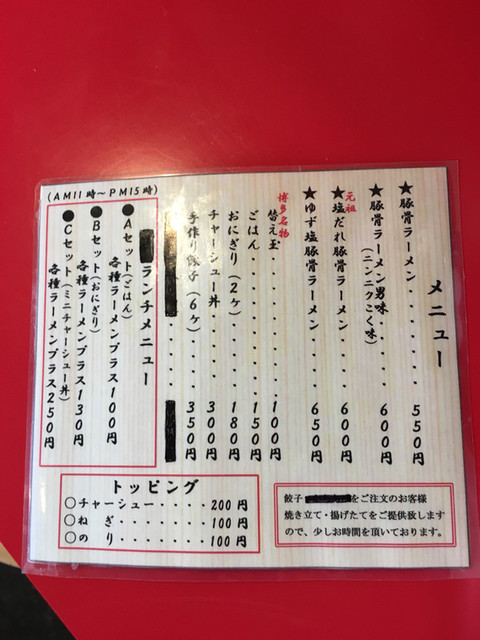 メニュー
★豚骨ラーメン・・・・・・550円
★豚骨ラーメン男味・・・・600円
(ニンニクこく味)
元祖
★塩だれ豚骨ラーメン・・・600円
★ゆず塩豚骨ラーメン・・・650円
博多名物
替え玉・・・・・・・・・100円
ごはん・・・・・・・・・150円
おにぎり(2ヶ)・・・・・180円
チャーシュー丼・・・・・300円
手作り餃子(6ヶ)・・・・350円
ランチメニュー
(AM11時〜PM15時)
●Aセット(ごはん)
各種ラーメンプラス100円
●Bセット(おにぎり)
各種ラーメンプラス130円
●Cセット(ミニチャーシュー丼)
各種ラーメンプラス250円
トッピング
○チャーシュー・・・・200円
○ねぎ・・・・・・・100円
○のり・・・・・・・100円
餃子
をご注文のお客様
焼き立て・揚げたてをご提供致します
ので、少しお時間を頂いております。